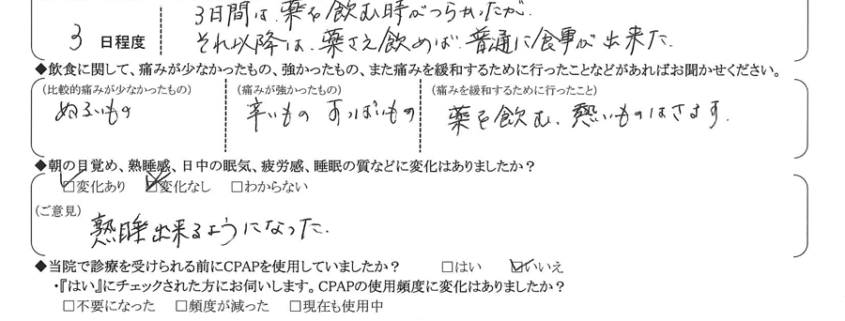 3日間は、薬を飲む時がつらかったが、
3 日程度
それ以降は、薬さえ飲めば、普通に食事が出来た。
◆飲食に関して、痛みが少なかったもの、強かったもの、また痛みを緩和するために行ったことなどがあればお聞かせください。
(比較的痛みが少なかったもの) (痛みが強かったもの) (痛みを緩和するために行ったこと)
ぬるいもの 辛いもの すっぱいもの 薬を飲む、熱いものはさます。
◆朝の目覚め、熟睡感、日中の眠気、疲労感、睡眠の質などに変化はありましたか？
☑変化あり ☒変化なし □わからない
(ご意見)
熟睡出来るようになった。
◆当院で診療を受けられる前にCPAPを使用していましたか？ □はい ☑いいえ
・『はい』にチェックされた方にお伺いします。CPAPの使用頻度に変化はありましたか？
□不要になった □頻度が減った □現在も使用中